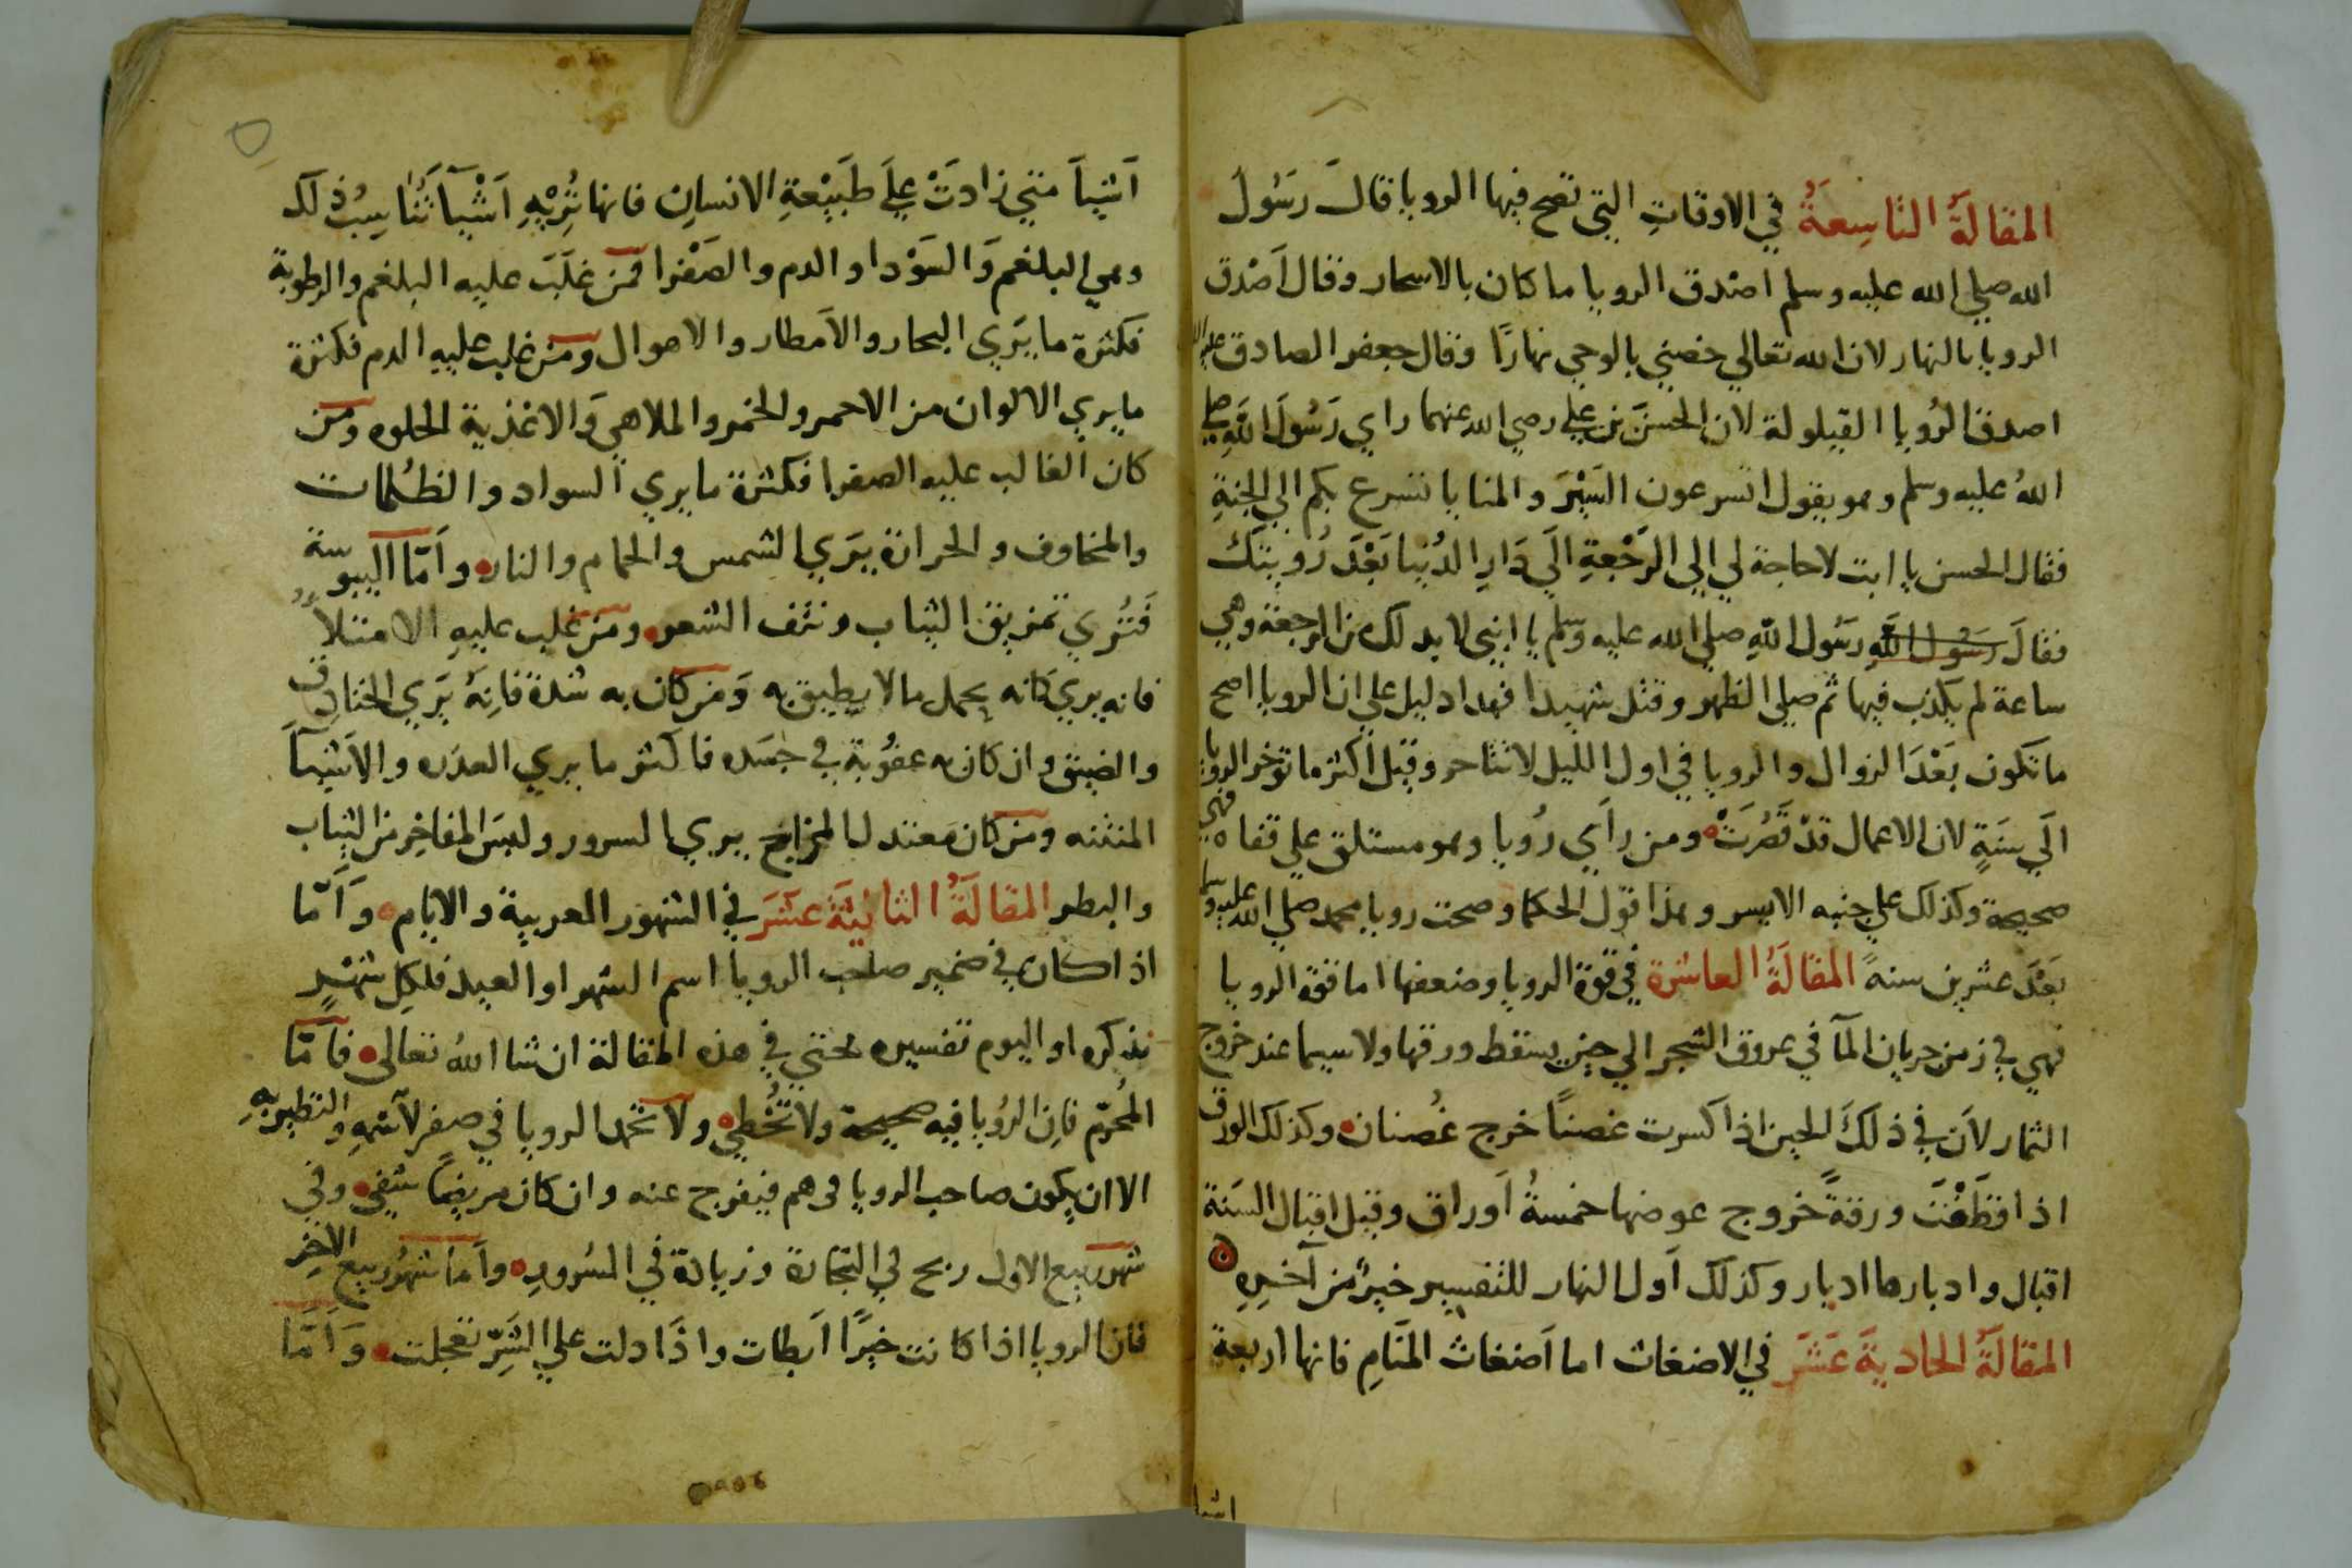 المقالَةُ التاسِعَةُ في الاوقاتِ التي تصح فيها الرويا قالَ رسَولُ
الله صلي الله عليه وسلم اصْدق الرويا ما كان بالاسحار وقال اَصْدق
الرويا بالنهار لان الله تعالي خصني بالوحي نهارًا وقال جعفر الصادق عليه
اصدق الرُويا القيلولة لان الحسنَ بن علي رضي الله عنهما راي رَسُولَ اللَّهِ صلي
اللهُ عليه وسلم وهو يقول اتسرعون السَيْرَ والمنايا تتسرع بكم الي الجنةِ
فقال الحسن يا ابت لا حاجة لي الي الرَجْعةِ الَي دَارِ الدُنيا بَعْدَ رُويتك
فقالَ رسَوُل اللَّهِ رسَوُل اللَّهِ صلي الله عليه وسَلم يا ابني لابد لك من الرجعة وهي
ساعة لم يكذب فيها ثم صلي الظهر وقتل شهيدا فهدا دليل علي ان الرويا اصح
ما تكون بَعْدَ الزوال والرويا في اول الليل لا تتاخر وقيل اكثر ما توخر الرويا
الَي سَنَةٍ لان الاعمال قدْ قَصُرَتْ ومن رأَي رُويا وهو مستلق علي قفاه فهي
صحيحة وكذلك علي جنبه الايسر وهذا قول الحكما وصحت رويا محمد صلي الله عليه وسلم
بَعْدَ عشرين سنةً المقالَةُ العاشرة في قوة الرويا وضعفها اما قوة الرويا
فهي في زمن جريان المآ في عروق الشجر الي حين يسقط ورقها ولا سيما عند خروج
الثمار لاَن في ذلكَ الحين اذا كسرت غصناً خرج غُصنان وكذلك الورق
اذا قطَفْتَ ورقةً خروج عوضها خمسةُ اَوراق وقيل اقبال السَنة
اقبال وادبارها ادبار وكذلك اَول النهار للتفسير خيرٌ من آخرِهِ
المقالَةُ الحاديةَ عَشَرَ في الاضغاث اما اَضغاث المنَامِ فانها اربعة
اشيا
اَشياَ متي زادَتْ علَي طَبيْعةِ الانسانِ فانها تُرِيْهِ اَشْيآ تُنَاسِبُ ذلك
وهي البلغم وَالسَوْدا والدم والصَفْرا فمَن غلَبَ عليه البلغم والرطوبة
فكثرة ما يَرَي البحار والاَمطار والاهوال ومَن غلب عليهِ الدم فكثرة
ما يري الالوان من الاحمر والخمر والملاهي وَالاغذية الحلوه ومَن
كان الغالب عليه الصفرا فكثرة ما يري السواد والظُلمات
والمخاوف والحرارة يَرَي الشمس والحمام والنار واَمّا اليبوسة
فَتُرَي تمزيق الثياب ونتف الشعر ومَن غلب عليهِ الامتلآُ
فانه يري كانه يحمل مالا يطيق به وَمَن كان به شدة فاِنهُ يَرَي الخنادق
والضيق وان كان به عفُونة في جسَده فاكثر ما يري العدَره والاَشيآَ
المنتنه ومَن كان معتدل المزاج يري السرور ولبسَ المفاخِر من الثياب
والبطر المقالَةُ الثانيَةَ عَشَرَ في الشهور العربية والايام وَاَمّا
اذا كان في ضمير صاحب الرويا اسم الشهر او العيد فلكلِ شهْرٍ
نذكره او اليوم تفسيره نختي في هذه المقالة ان شا اللهُ تعالي فاَمّا
المُحرّم فاِن الرُويا فيه صحيحة ولا تُخْطِي ولا تحمد الرويا في صفر لاَسمهِ والتطير بهِ
الا ان يكون صاحب الرويا في هم فيفرج عنه وان كان مريضاً شفي وفي
شهر ربيع الاول ربح في التجارة وزيادة في السُرورِ واَما شهرُ ربيع الاخِر
فان الرويا اذا كانت خيرًا اَبطات واذَا دلت علي الشَرِّ تعجلت وَاَمَّا